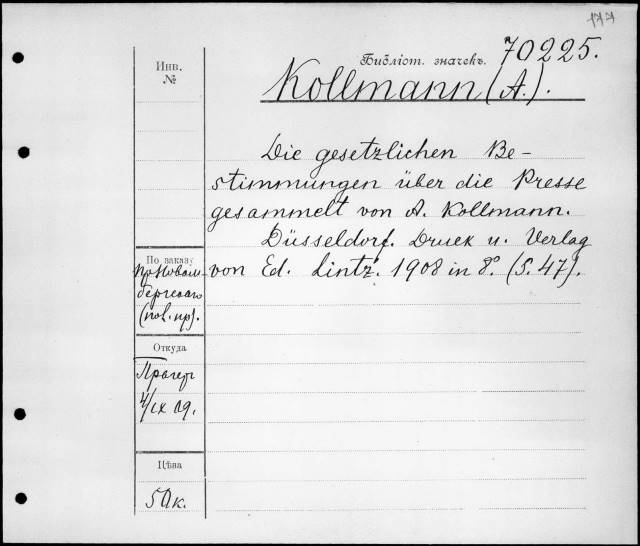 177
Библіот. значекъ. 70225.
Инв.
№
Kollmann (A.).
Die gesetzlichen Be-
stimmungen über die Presse
gesammelt von A. Kollmann.
Düsseldorf. Druck u. Verlag
von Ed. Lintz. 1908 in 8°. (S. 47).
По заказу
бергскаго
Откуда
Прагеръ
4/IX 09.
Цѣна
50к.